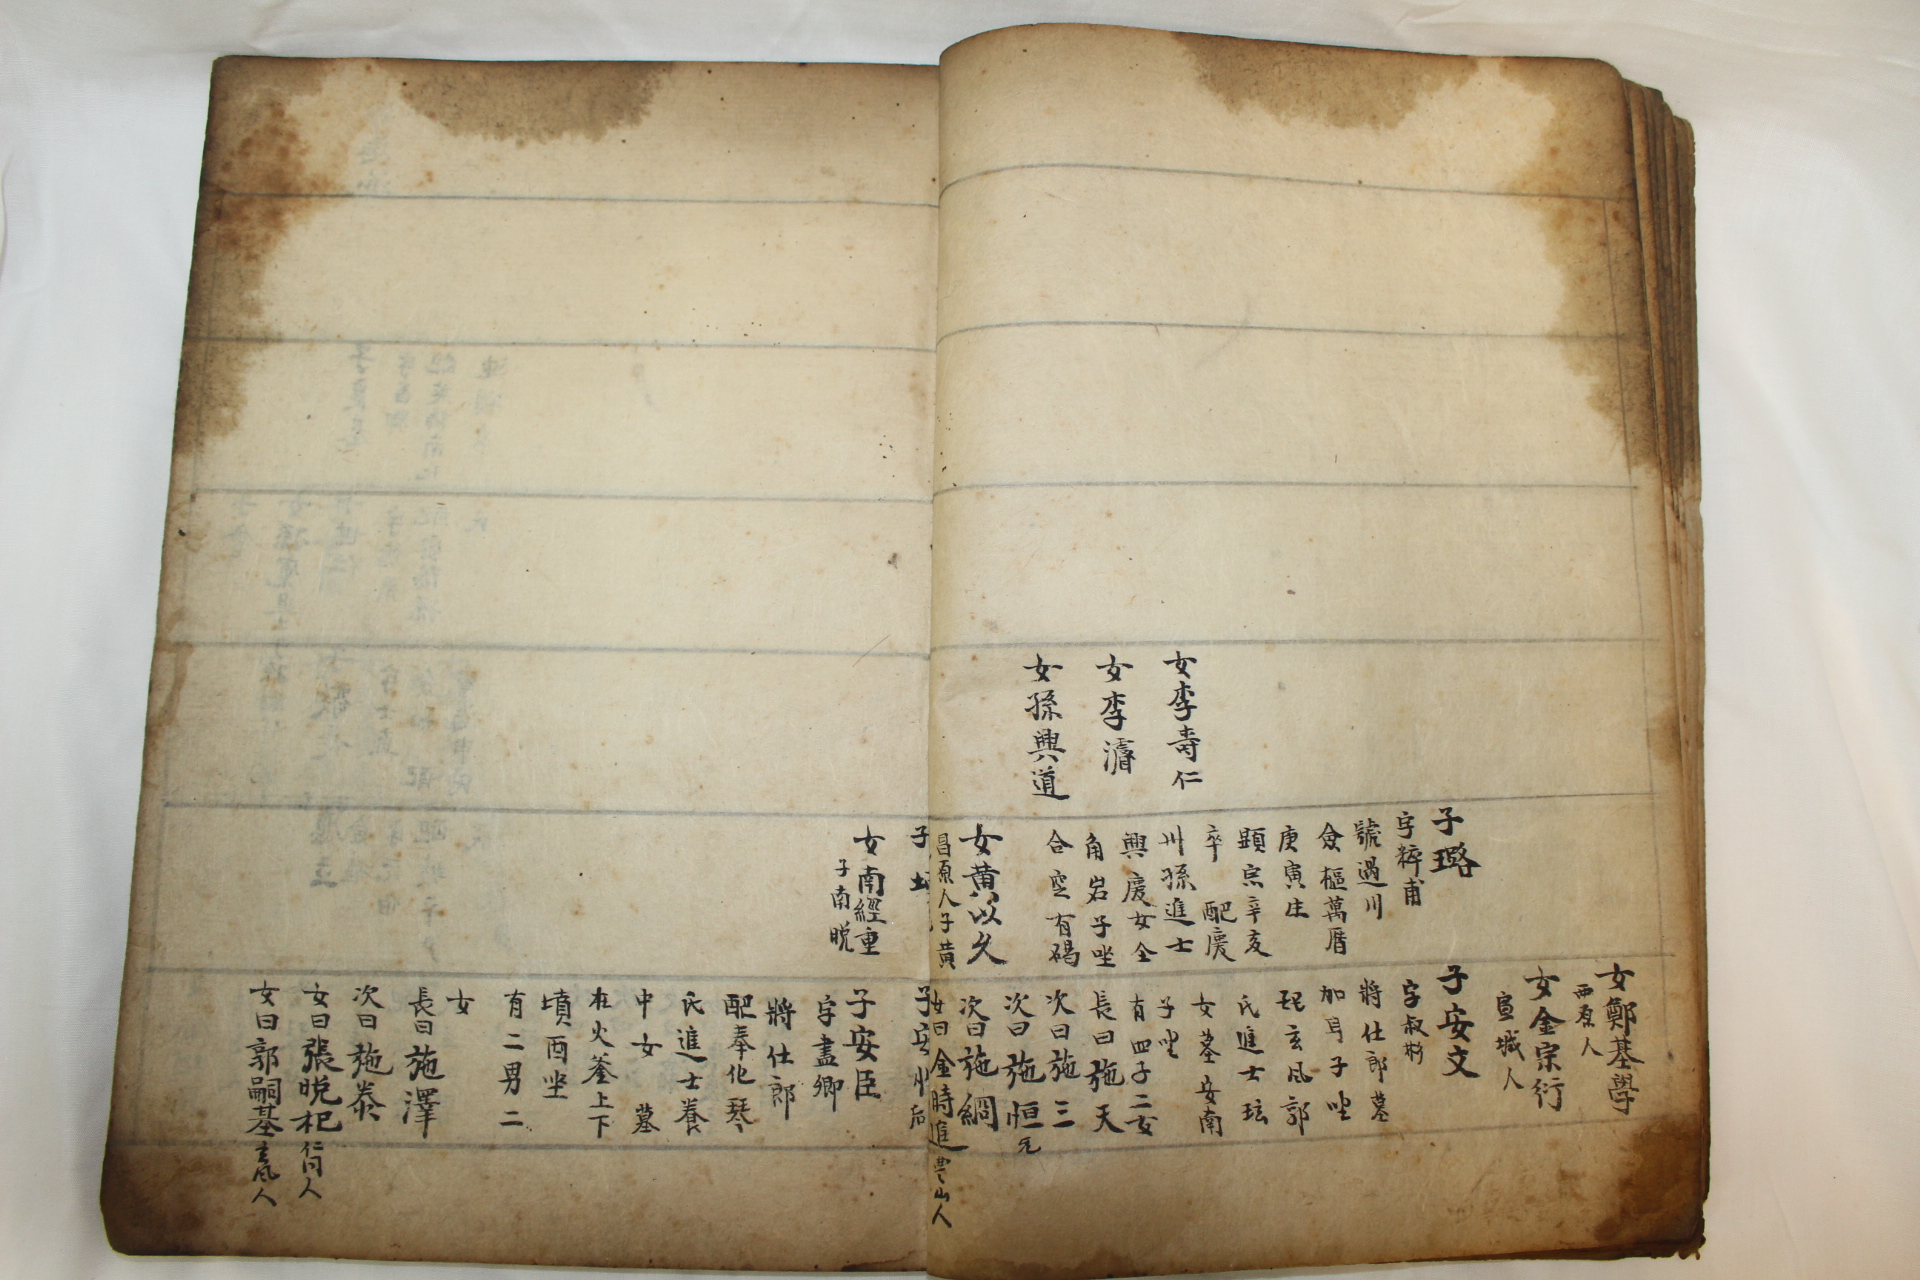 女李壽仁
女李濬
女孫興道
子璐
字粹甫
號過川
僉樞萬曆
庚寅生
顯宗辛亥
卒 配慶
州孫進士
興慶女仝
角岩子坐
合窆有碣
女黃以久
昌原人子黃
子
女南經重
子南晩
女鄭基學
西原人
女金宗衍
宣城人
子安文
字叔
將仕郎墓
加耳子坐
配玄風郭
氏進士玹
女墓安南
子坐
有四子二女
長曰施天
次曰施三
次曰施恒
次曰施綱
女曰金時進豊山人
子安
后
子安臣
字盡卿
將仕郎
配奉化琴
氏進士養
中女 墓
在火釜上下
墳酉坐
有二男二
女
長曰施澤
次曰施泰
女曰張晩杞仁同人
女曰郭嗣基玄風人